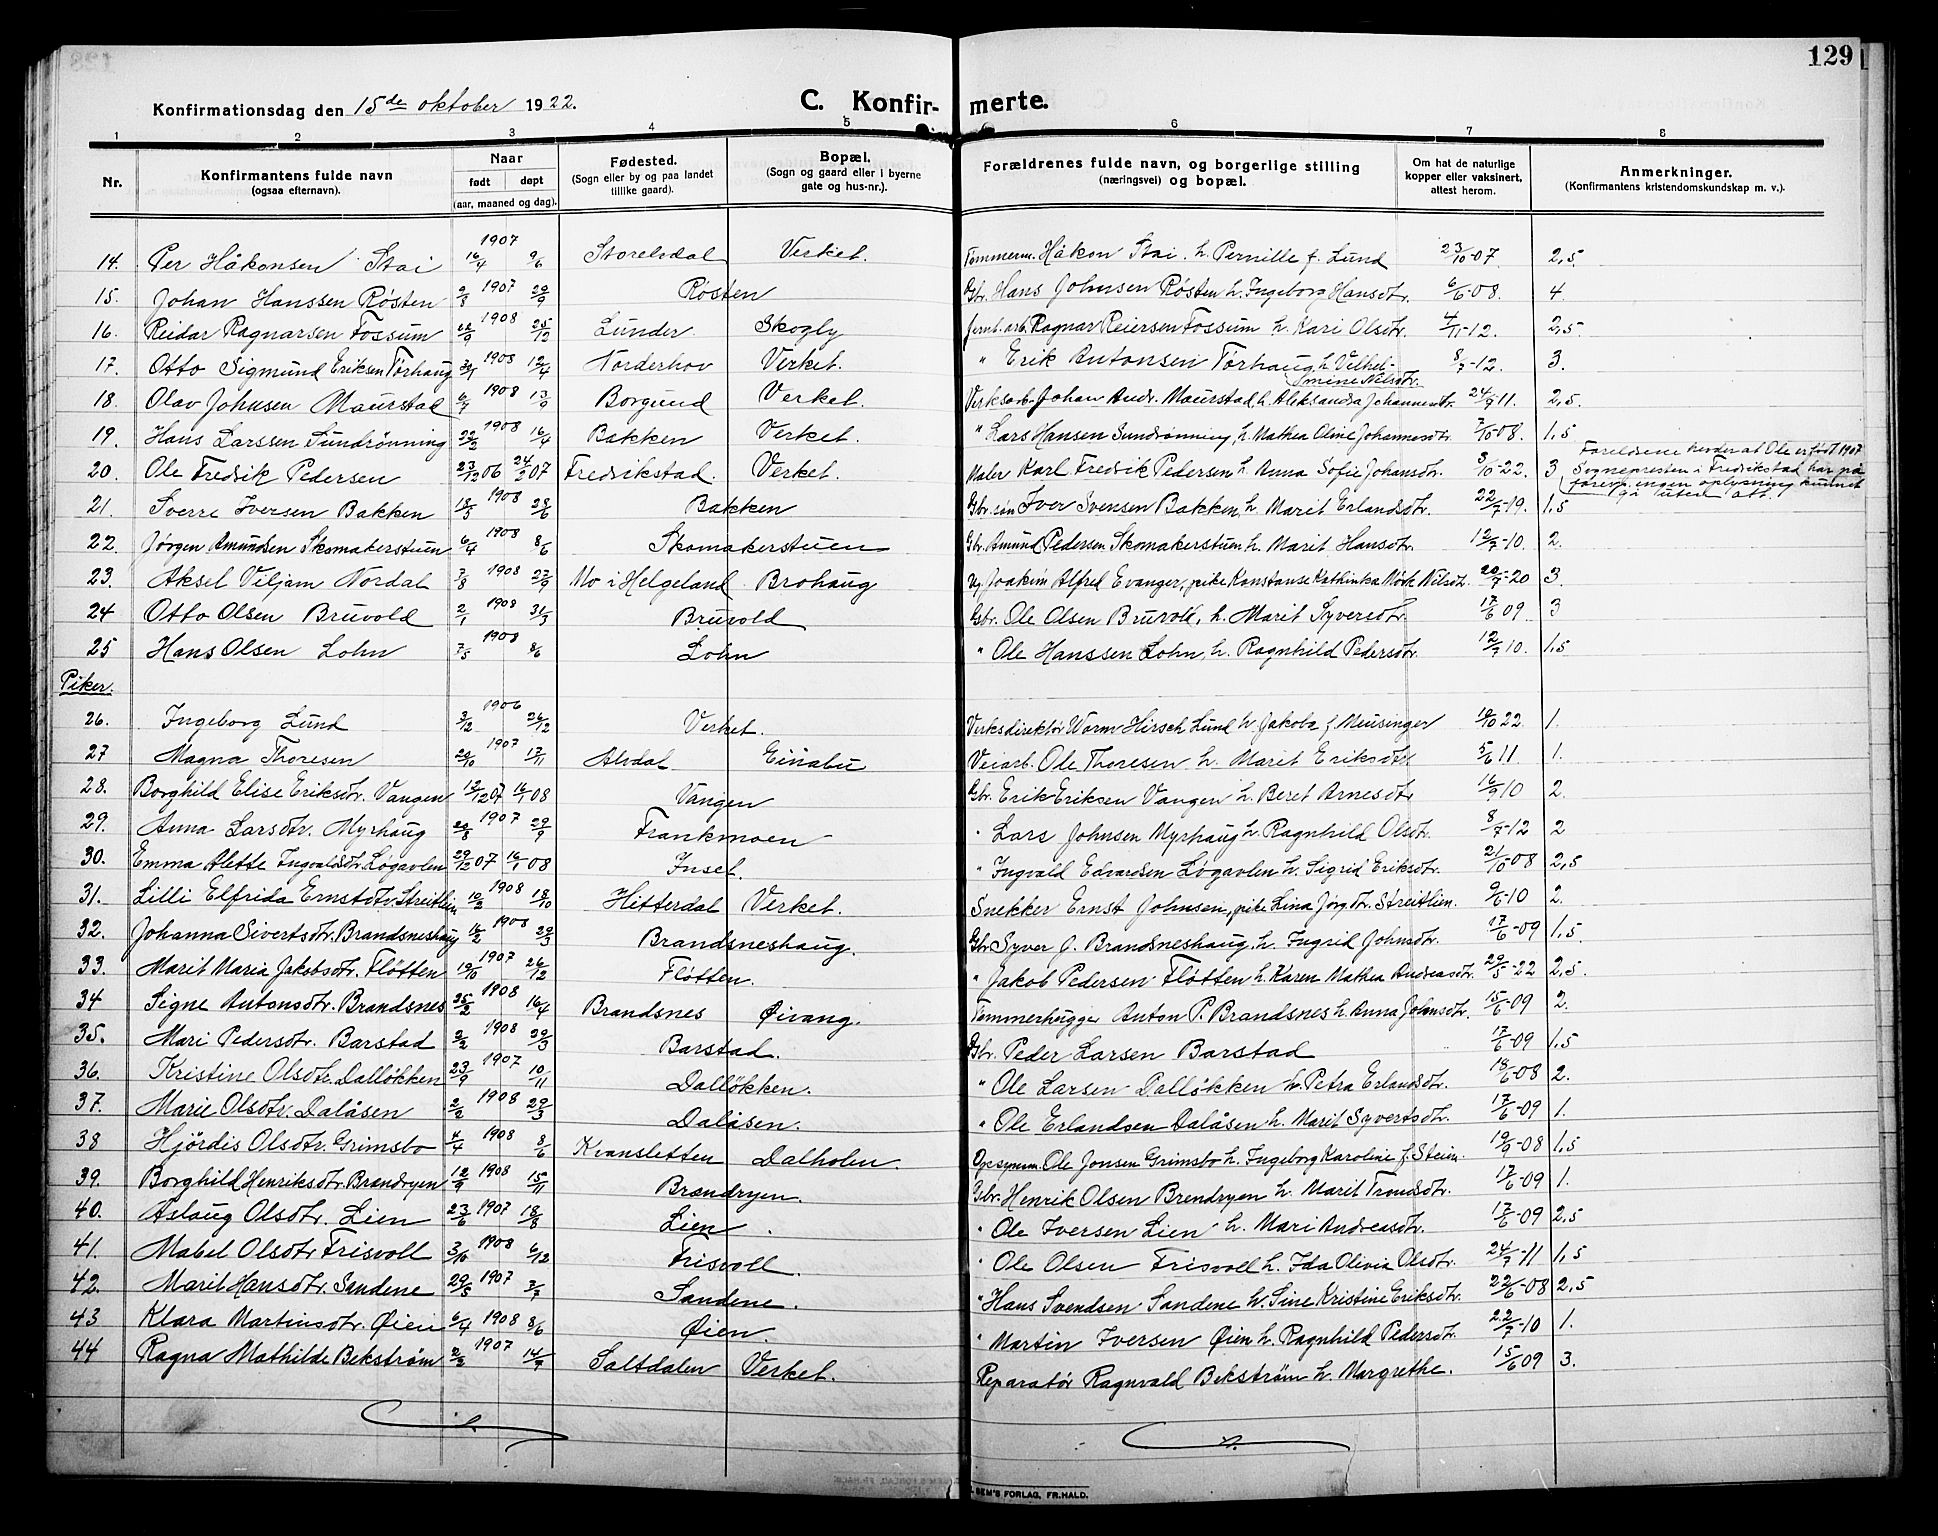 129
Konfirmationsdag den 15de oktober 1922.
C. Konfirmerte.
1 2 3 4 5 6 7 8
Nr.
Konfirmantens fulde navn
(ogsaa efternavn).
Naar
født døpt
(aar, maaned og dag).
Fødested.
(Sogn eller by og paa landet
tillike gaard).
Bopæl.
(Sogn og gaard eller i byerne
gate og hus-nr.).
Forældrenes fulde navn, og borgerlige stilling
(næringsvei) og bopæl.
Om hat de naturlige
kopper eller vaksinert,
attest herom.
Anmerkninger.
(Konfirmantens kristendomskundskap m. v.).
14. Per Håkonsen Stai 16/4 1907 9/6 Storelvdal Verket. Tømmerm. Håkon Stai h. Pernille f. Lund 23/10-07. 2,5.
15. Johan Hanssen Røsten 1907 29/9 Røsten Gbr. Hans Johnsen Røsten h. Ingeborg Hansdtr. 6/6-08. 4
16. Reidar Ragnarsen Fossum 22/9 1908 25/12 Lunder Skogly Jernb.arb. Ragnar Reiersen Fossum h. Kari Olsdtr. 4/11-12. 2,5
17. Otto Sigmund Eriksen Tørhaug 1908 12/4 Norderhov Verket. " Erik Antonsen Tørhaug h. Vilhelmine Nilsdtr. 8/7-12. 3.
18. Olav Johnsen Maurstad 6/7 1908 13/9 Borgund Verket. Verksarb. Johan Andr. Maurstad h. Aleksandra Johannesdtr. 24/9 11. 2,5.
19. Hans Larssen Sundrønning 22/2 1908 16/4 Bakken Verket. " Lars Hansen Sundrønning, h. Mathea Oline Johannesdtr. 7/10-08. 1,5
20. Ole Fredrik Pedersen 23/12 06 24/2 07 Fredrikstad. Verket. Maler Karl Fredrik Pedersen h. Anna Sofie Johansdtr. 3/10-22. 3 Foreldrene hevder at Ole er født 1907
Sognepresten i Fredrikstad har på
foresp. ingen oplysning kunnet
gi uten att.
21. Sverre Iversen Bakken 18/3 1908 28/6 Bakken Gbr.søn Iver Svensen Bakken, h. Marit Erlandsdtr. 22/7-19. 1,5
22. Jørgen Amundsen Skomakerstuen 6/4 1908 8/6 Skomakerstuen Gbr. Amund Pedersen Skomakerstuen h. Marit Hansdtr. 12/7-10. 2.
23. Aksel Viljam Nordal 7/8 1908 27/9 Mo i Helgeland Brohaug Ug. Joakim Alfred Evanger, pike Konstanse Kathinka Mørk Nilsdt. 20/7-20 3.
24 Otto Olsen Bruvold 2/1 1908 31/3 Bruvold Gbr. Ole Olsen Bruvold, h. Marit Syversdtr. 17/6 09. 3
25 Hans Olsen Lohn 7/5 1908 8/6 Lohn " Ole Hanssen Lohn, h. Ragnhild Pedersdtr. 12/7 10. 1,5
Piker.
26. Ingeborg Lund 3/12 1906 26/12 Verket. Verksdirektør Worm Hirsch Lund h. Jakoba f. Meusinger 10/10 22. 1.
27 Magna Thoresen 20/10 1907 17/11 Alvdal Einabu Veiarb. Ole Thoresen h. Marit Eriksdtr 5/6 11. 1.
28. Borghild Elise Eriksdtr. Vangen 12/12 07 16/1 08 Vangen Gbr. Erik Eriksen Vangen h. Beret Arnesdtr 16/9 10 2.
29. Anna Larsdtr. Myrhaug 20/8 1907 29/9 Frankmoen " Lars Johnsen Myrhaug h. Ragnhild Olsdtr. 8/7-12 2
30. Emma Alette Ingvaldsdtr. Løgavlen 29/12 07 16/1 08 Inset. " Ingvald Edvardsen Løgavlen h. Sigrid Eriksdtr. 21/10-08 2,5
31. Lilli Elfrida Ernstdtr. Streitlien 10/3 1908 18/10 Hitterdal Verket. Snekker Ernst Johnsen, pike Lina Jørg.dtr. Streitlien. 9/6-10 2.
32. Johanna Sivertsdtr. Brandsneshaug 16/2 1908 29/3 Brandsneshaug. Gbr Syver J. Brandsneshaug h. Ingrid Johnsdtr. 17/6-09 1,5.
33. Marit Maria Jakobsdtr. Fløtten 19/10 1907 26/12 Fløtten. " Jakob Pedersen Fløtten h. Karen Mathea Andreasdtr. 29/5-22 2,5.
34 Signe Antonsdtr. Brandsnes 25/2 1908 16/4 Brandsnes Øivang. Tømmerhugger Anton P. Brandsnes h. Anna Johansdtr. 15/6-09 2.
35. Mari Pedersdtr. Barstad 2/2 1908 29/3 Barstad. Gbr. Peder Larsen Barstad 17/6-09 1,5
36. Kristine Olsdtr. Dalløkken 23/9 1907 10/11 Dalløkken. " Ole Larsen Dalløkken h. Petra Erlandsdtr. 18/6-08 2.
37. Marie Olsdtr. Dalåsen 2/2 1908 29/3 Dalåsen. " Ole Erlandsen Dalåsen h. Marit Syvertsdtr. 17/6-09 1.
38 Hjördis Olsdtr. Grimsbo 4/4 1908 8/6 Kvansletten Dalholen. Opsynsm. Ole Jonsen Grimsbo h. Ingeborg Karoline f. Steim. 19/9-08 1,5
39. Borghild Henriksdtr. Brændryen 12/9 1908 15/11 Brændryen. Gbr. Henrik Olsen Brendryen h. Marit Trondsdtr. 17/6-09 1.
40. Aslaug Olsdtr. Lien 23/6 1907 18/8 Lien " Ole Iversen Lien h. Mari Andreasdtr. 17/6-09 2,5
41. Mabel Olsdtr Frisvoll 3/10 1908 6/12 Frisvoll. " Ole Olsen Frisvoll h. Ida Olivia Olsdtr. 24/7-11 1,5
42. Marit Hansdtr. Sandene 29/5 1907 7/7 Sandene. " Hans Svendsen Sandene h. Sine Kristine Eriksdtr. 22/6-08 2,5
43 Klara Martinsdtr. Øien 6/4 1908 8/6 Øien. " Martin Iversen Øien h. Ragnhild Pedersdtr. 22/7-10 1.
44 Ragna Mathilde Bekstrøm 2/3 1907 14/7 Saltdalen Verket. Reparatør Ragnvald Bekstrøm h. Margrethe. 15/6 09 3.
SEM'S FORLAG, FR.HALD.